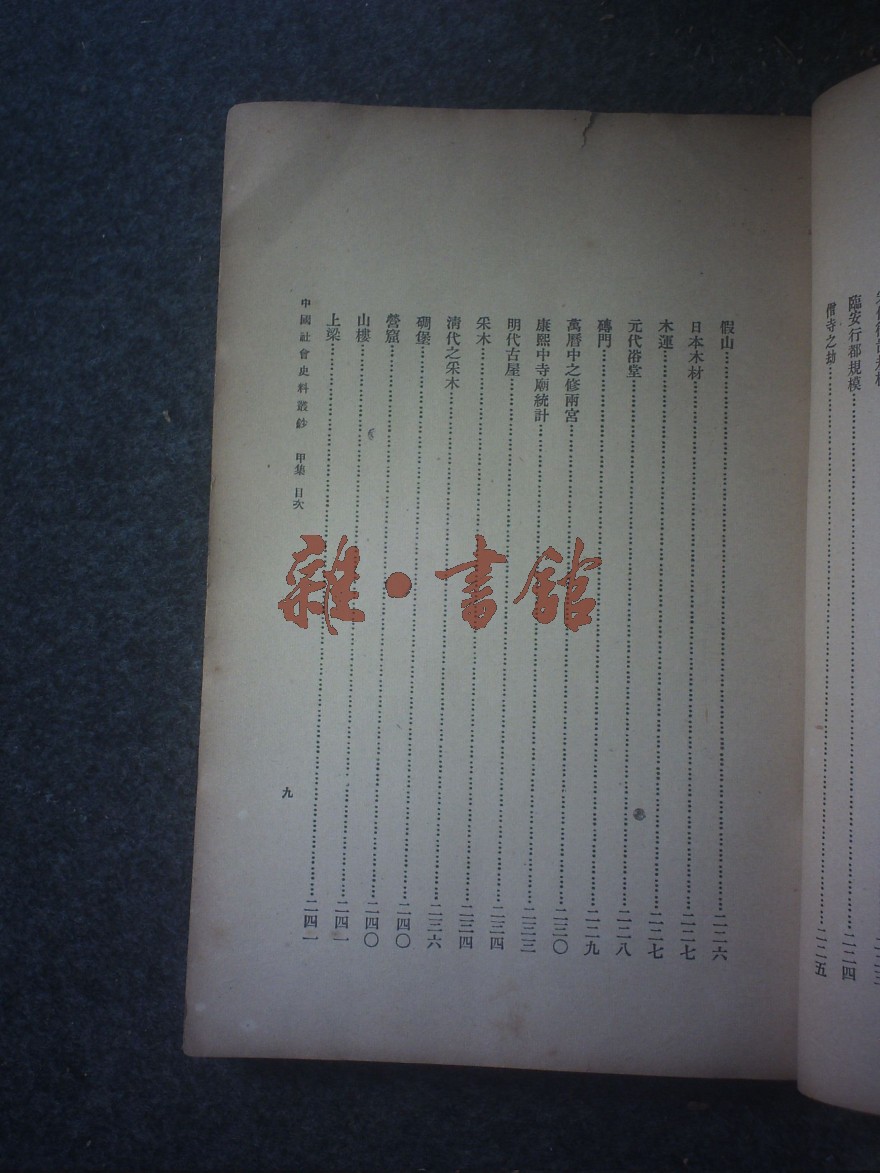 臨安行都規模……二二四
僧寺之劫……二二五
假山……二二六
日本木材……二二七
木運……二二七
元代浴堂……二二八
磚門……二二九
萬曆中之修兩宮……二三〇
康熙中寺廟統計……二三三
明代古屋……二三四
采木……二三四
清代之采木……二三六
碉堡……二四〇
營窟……二四〇
山樓……二四一
上梁……二四一
中國社會史料叢鈔 甲集 目次
九
雜·書館